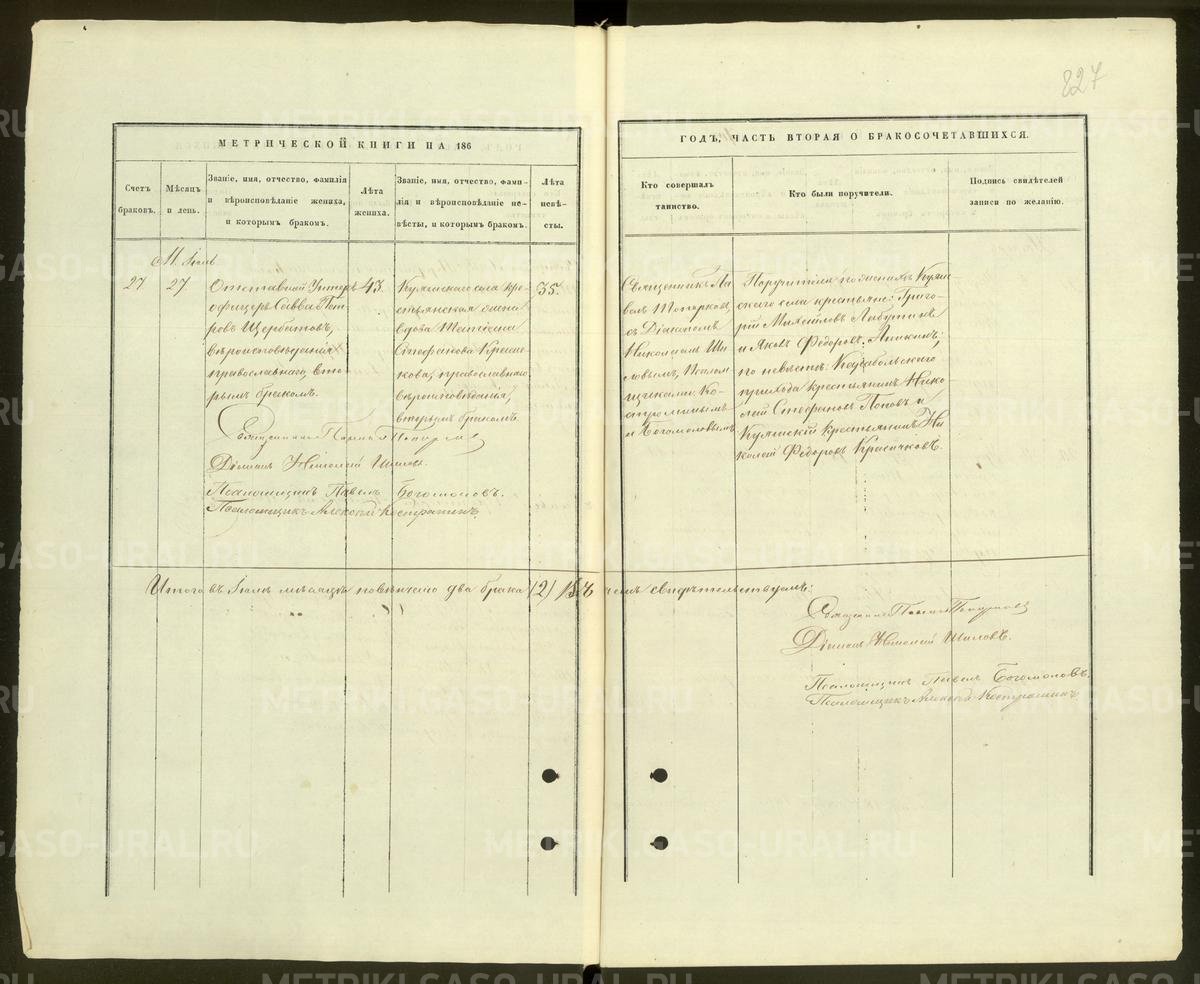 227
МЕТРИЧЕСКОЙ КНИГИ НА 186
ГОДЪ, ЧАСТЬ ВТОРАЯ О БРАКОСОЧЕТАВШИХСЯ.
Счетъ браковъ.
Мѣсяцъ и день.
Званіе, имя, отчество, фамилія
и вѣроисповѣданіе жениха,
и которымъ бракомъ.
Лѣта жениха.
Званіе, имя, отчество, фами-
лія и вѣроисповѣданіе не-
вѣсты, и которымъ бракомъ.
Лѣта невѣ-
сты.
Кто совершалъ
таинство.
Кто были поручители.
Подпись свидѣтелей
записи по желанію.
27
27
Отставной Унтеръ
офицеръ Савва Пет-
ровъ Щербаковъ,
вѣроисповѣданія
православнаго, вто-
рымъ бракомъ.
43.
Кре-
стьянская жена
вдова Татіана
Стефанова
православнаго
вѣроисповѣданія,
вторымъ бракомъ.
35.
Священникъ Па-
велъ Топорковъ
съ Діакономъ
Николаемъ Ши-
ловымъ, Псалом-
щиками: Ко-
и Богомоловымъ
Поручители по женихѣ
села крестьяне: Григо-
рій Михайловъ
и Яковъ Ѳедоровъ
по невѣстѣ:
прихода крестьянинъ Нико-
лай Стефановъ Поповъ и
крестьянинъ Ни-
колай Ѳедоровъ
Священникъ Павелъ Топорковъ
Діаконъ Николай Шиловъ.
Псаломщикъ Павелъ Богомоловъ.
Псаломщикъ Алексѣй
Итого въ мѣсяцѣ повѣнчано два брака (2) въ чемъ свидѣтельствуемъ:
Священникъ Павелъ Топорковъ
Діаконъ Николай Шиловъ.
Псаломщикъ Павелъ Богомоловъ.
Псаломщикъ Алексѣй
METRIKI.GASO-URAL.RU